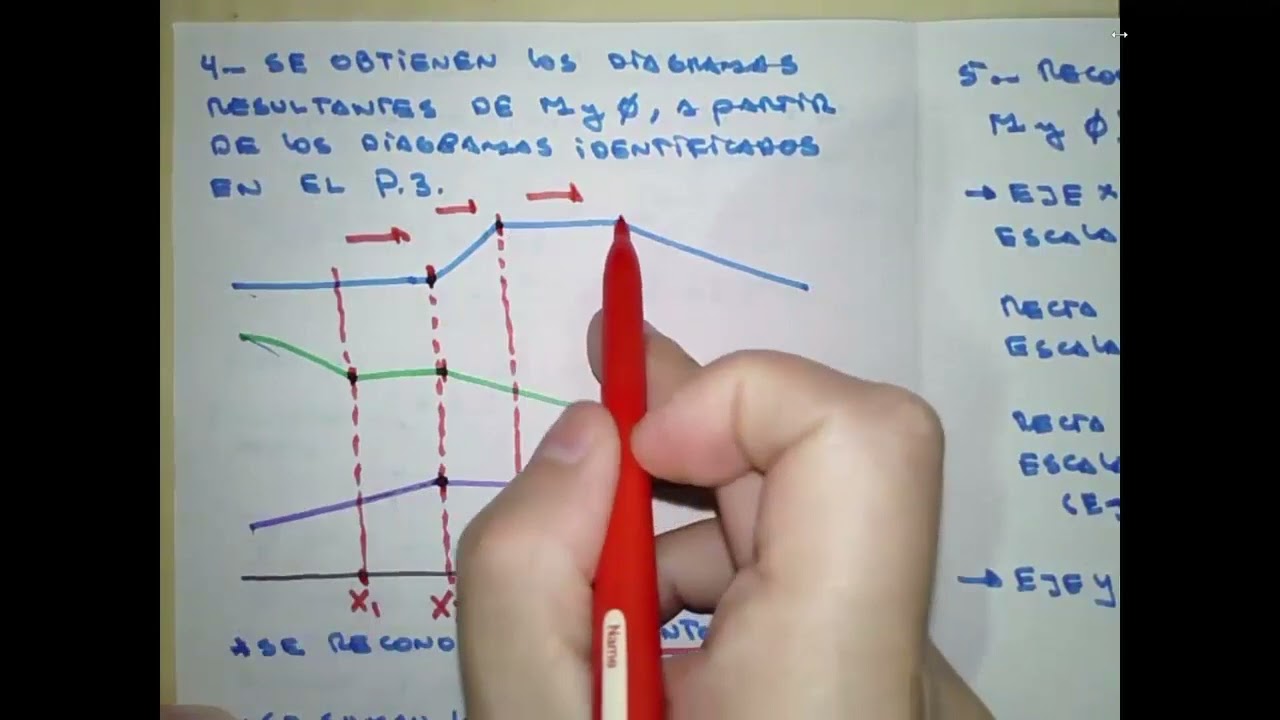 4- SE OBTIENEN LOS DIAGRAMAS
RESULTANTES DE M y Ø, A PARTIR
DE LOS DIAGRAMAS IDENTIFICADOS
EN EL P.3.
X₁
X
*SE RECONO
NTO
Name
5.- RECO
M y Ø
→ EJE X
ESCALA
RECTA
ESCALA
RECTA
ESCALA
(EJ
→ EJE Y